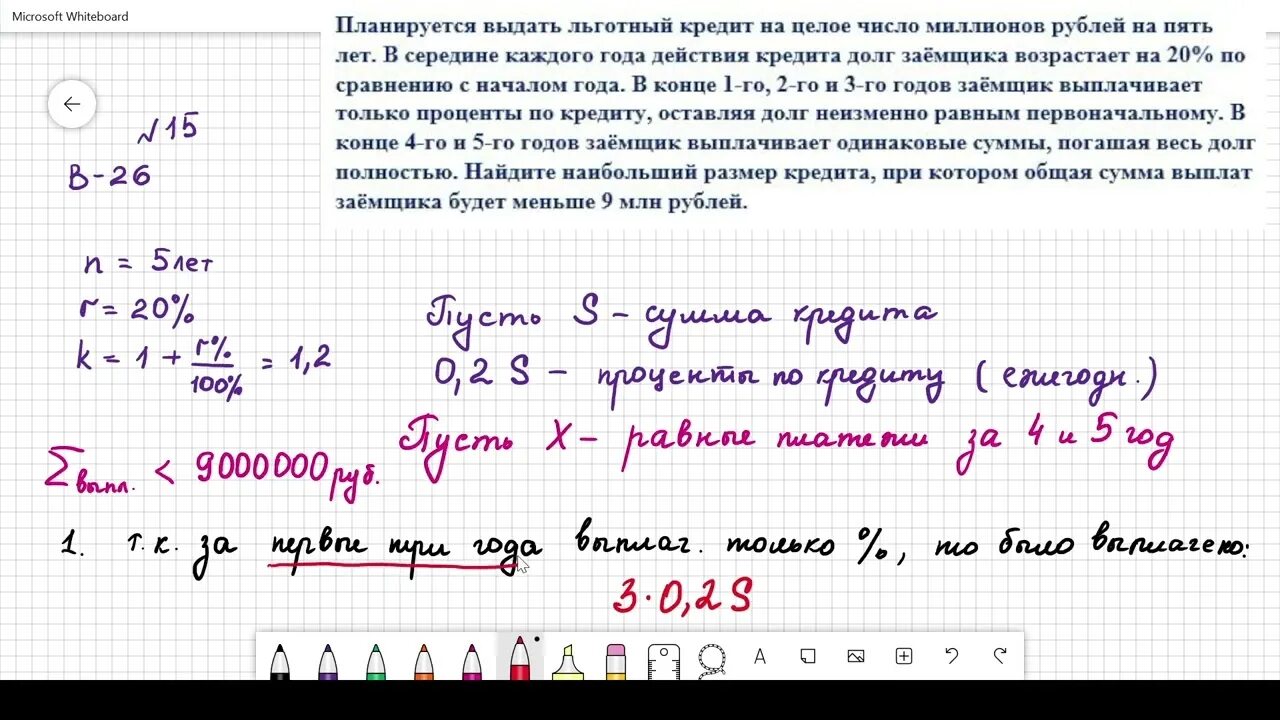 Microsoft Whiteboard
Планируется выдать льготный кредит на целое число миллионов рублей на пять
лет. В середине каждого года действия кредита долг заёмщика возрастает на 20% по
сравнению с началом года. В конце 1-го, 2-го и 3-го годов заёмщик выплачивает
только проценты по кредиту, оставляя долг неизменно равным первоначальному. В
конце 4-го и 5-го годов заёмщик выплачивает одинаковые суммы, погашая весь долг
полностью. Найдите наибольший размер кредита, при котором общая сумма выплат
заёмщика будет меньше 9 млн рублей.
№15
В-26
n = 5 лет
r = 20%
k = 1 + r%/100% = 1,2
Пусть S - сумма кредита
0,2 S - проценты по кредиту (ежегодн.)
Пусть X - равные платежи за 4 и 5 год
Σвыпл. < 9000000 руб.
1. т.к. за первые три года выплач. только %, то было выплачено:
3·0,2S
A